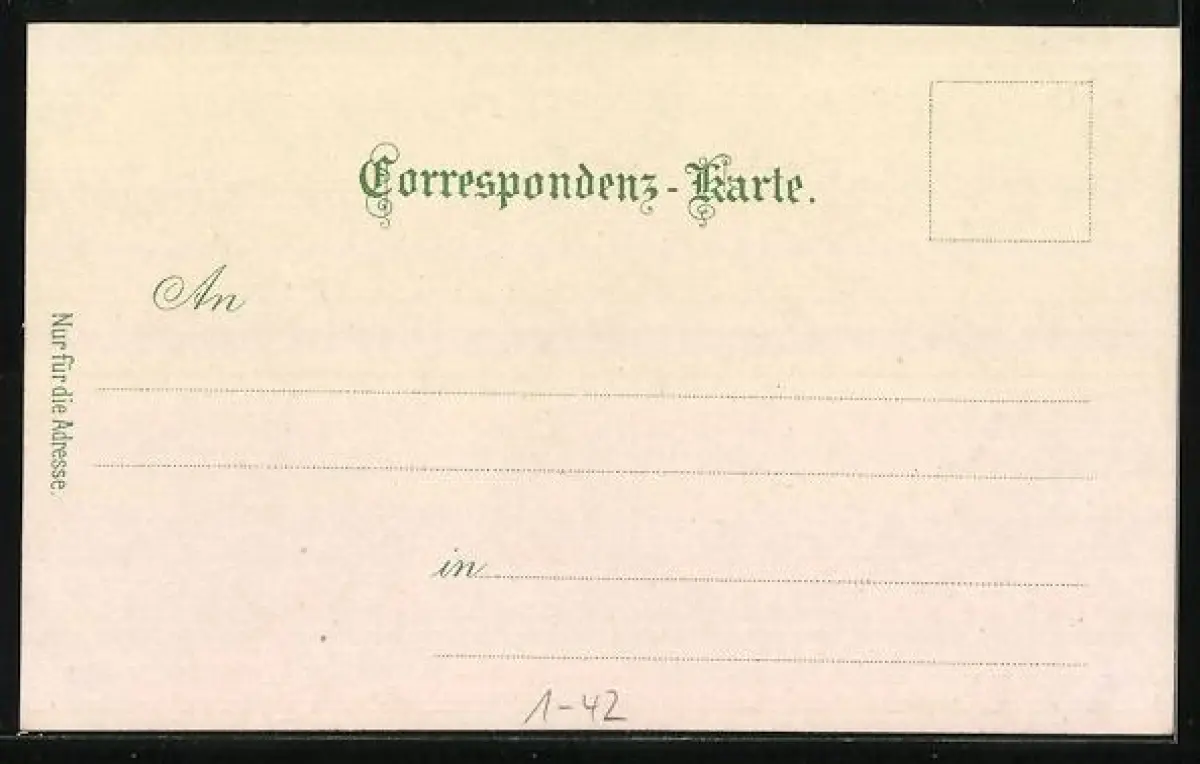 Correspondenz-Karte.
An
Nur für die Adresse.
in
1-42